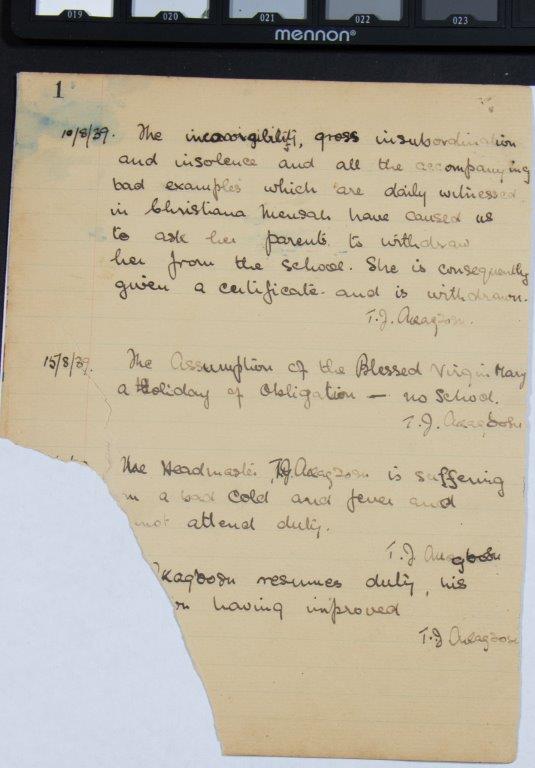 019 020 021 022 023
mennon®
1
10/8/39. The incorrigibility, gross insubordination
and insolence and all the accompanying
bad examples which are daily witnessed
in Christiana Mensah have caused us
to ask her parents to withdraw
her from the school. She is consequently
given a certificate and is withdrawn.
T.J.
15/8/39. The Assumption of the Blessed Virgin Mary
a Holiday of Obligation — no School.
T.J.
The Headmaster, T.J. is suffering
a bad cold and fever and
not attend duty.
T.J.
resumes duty, his
having improved
T.J.